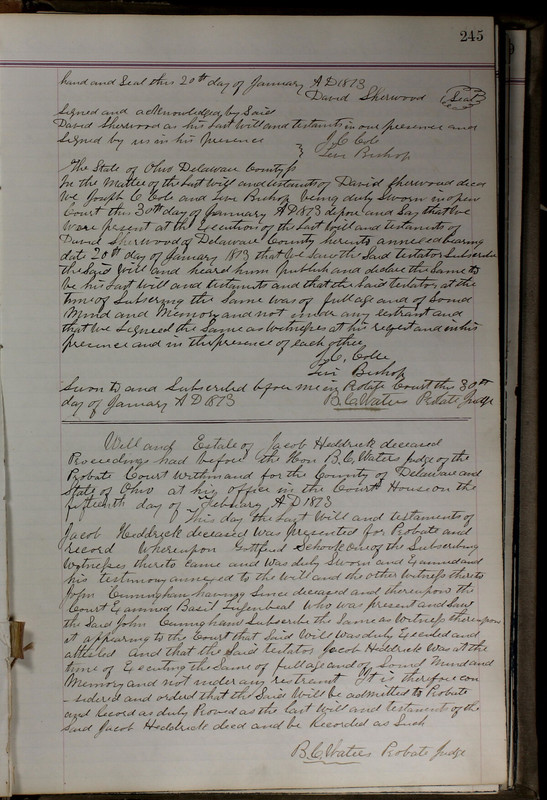 245
hand and Seal this 20th day of January AD 1873
David Sherwood Seal
Signed and acknowledged by Said
David Sherwood as his Last Will and testaments in our presence and
Signed by us in his presence J. C. Cole
Levi Bishop
The State of Ohio Delaware County ss
In the Matter of the Last Will and testaments of David Sherwood decd
We Joseph C Cole and Levi Bishop being duly Sworn in open
Court this 30th day of January AD 1873 depose and Say that we
Were present at the Execution of the Last Will and testaments of
David Sherwood of Delaware County hereunto annexed bearing
date 20th day of January 1873 that We Saw the Said testator Subscribe
the Said Will and heard him publish and declare the Same to
be his Last Will and testaments and that the Said testator at the
time of Subscring the Same was of full age and of Sound
Mind and Memory and not under any restraint and
that We Signed the Same as Witnesses at his request and in his
presence and in the presence of each other
J. C. Cole
Levi Bishop
Sworn to and Subscribed before me in Probate Court this 30th
day of January AD 1873 B. C. Waters Probate Judge
Will and Estate of Jacob Heddrick deceased
Proceedings had before the Hon B. C. Waters Judge of the
Probate Court Within and for the County of Delaware and
State of Ohio at his office in the Court House on the
fifteenth day of February AD 1873
This day the Last Will and testaments of
Jacob Heddrick deceased Was presented for Probate and
record Whereupon Gottfried one of the Subscribing
Witnesses thereto Came and Was duly Sworn and Examined and
his testimony annexed to the Will and the other Witness thereto
John Cunningham having Since deceased and thereupon the
Court Examined Basil Who was present and Saw
the Said John Cunningham Subscribe the Same as Witness thereupon
it appearing to the Court that Said Will was duly Executed and
attested And that the Said testator Jacob Heddrick Was at the
time of Executing the Same of full age and of Sound Mind and
Memory and not under any restraint It is therefore con
-sidered and orderd that the Said Will be admitted to Probate
and Record as duly Proved as the Last Will and testament of the
Said Jacob Heddrick decd and be Recorded as Such
B. C. Waters Probate Judge